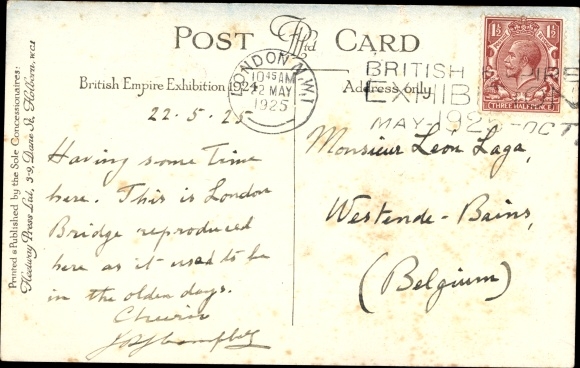 POST CARD
British Empire Exhibition 1924
Address only
LONDON N.W.1
10 45 AM
22 MAY
1925
BRITISH EMPIRE
EXHIBITION
MAY-192 -OCT
1½ 1½
THREE HALFPENCE
Printed & Published by the Sole Concessionaires:
Fleetway Press Ltd., 3-9, Dane St. Holborn. W.C.1
22.5.25
Having some time
here. This is London
Bridge reproduced
here as it used to be
in the olden days.
Cheerio
Campbell
Monsieur Leon Laga,
Westende-Bains,
(Belgium)